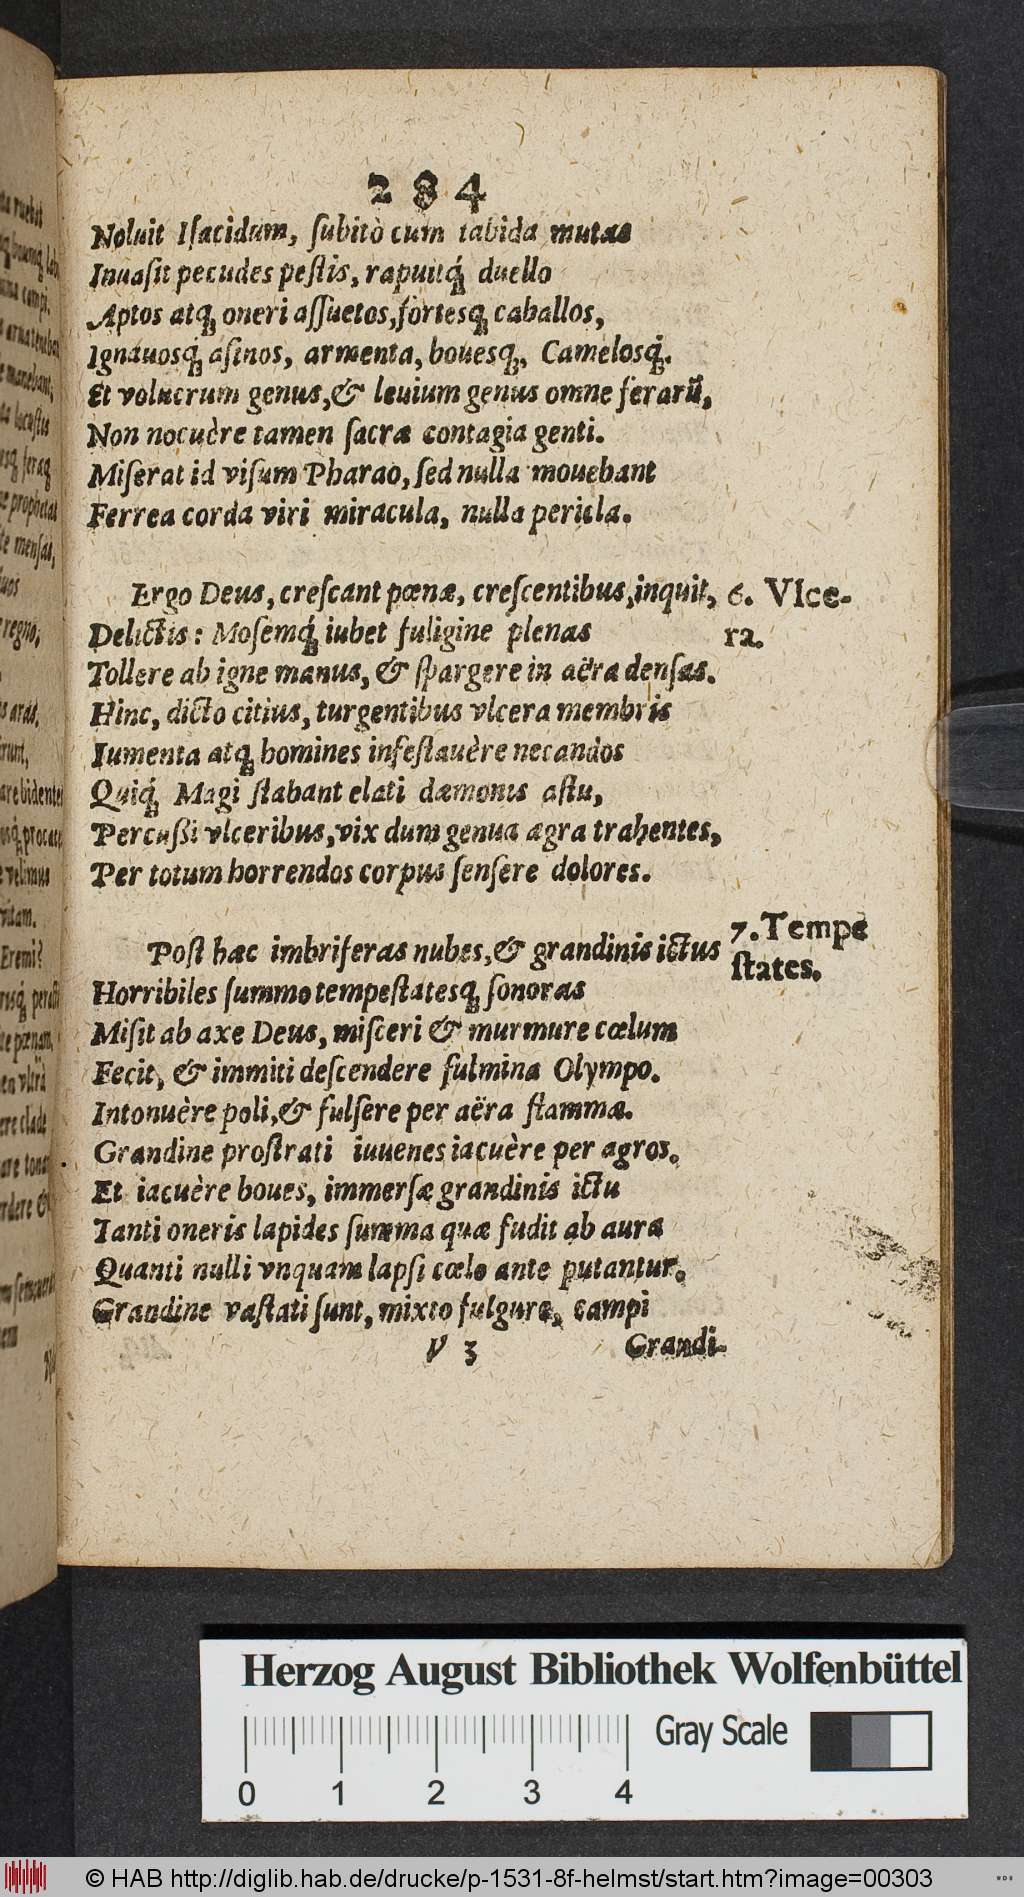 284
Noluit Iſacidum, ſubitò cum tabida mutas
Inuaſit pecudes peſtis, rapuitq́; duello
Aptos atq; oneri aſſuetos, fortesq; caballos,
Ignauosq́; aſinos, armenta, bouesq;, Camelosq́;.
Et volucrum genus, & leuium genus omne ferarũ,
Non nocuère tamen ſacræ contagia genti.
Miſerat id viſum Pharao, ſed nulla mouebant
Ferrea corda viri miracula, nulla pericla.
Ergo Deus, creſcant pœnæ, creſcentibus, inquit,
6. Vlce-
ra.
Delictis: Moſemq́; iubet fuligine plenas
Tollere ab igne manus, & ſpargere in aëra denſas.
Hinc, dicto citius, turgentibus vlcera membris
Iumenta atq; homines infeſtauère necandos
Quiq́; Magi ſtabant elati dæmonis aſtu,
Percuſſi vlceribus, vix dum genua ægra trahentes,
Per totum horrendos corpus ſenſere dolores.
7. Tempe
ſtates.
Poſt hæc imbriferas nubes, & grandinis ictus
Horribiles ſummo tempeſtatesq; ſonoras
Miſit ab axe Deus, miſceri & murmure cœlum
Fecit, & immiti deſcendere fulmina Olympo.
Intonuère poli, & fulſere per aëra flammæ.
Grandine proſtrati iuuenes iacuère per agros.
Et iacuère boues, immerſæ grandinis ictu
Tanti oneris lapides ſumma quæ fudit ab aura
Quanti nulli vnquam lapſi cœlo ante putantur.
Grandine vaſtati ſunt, mixto fulgure, campi
V 3
Grandi-
Herzog August Bibliothek Wolfenbüttel
Gray Scale
0 1 2 3 4
© HAB http://diglib.hab.de/drucke/p-1531-8f-helmst/start.htm?image=00303